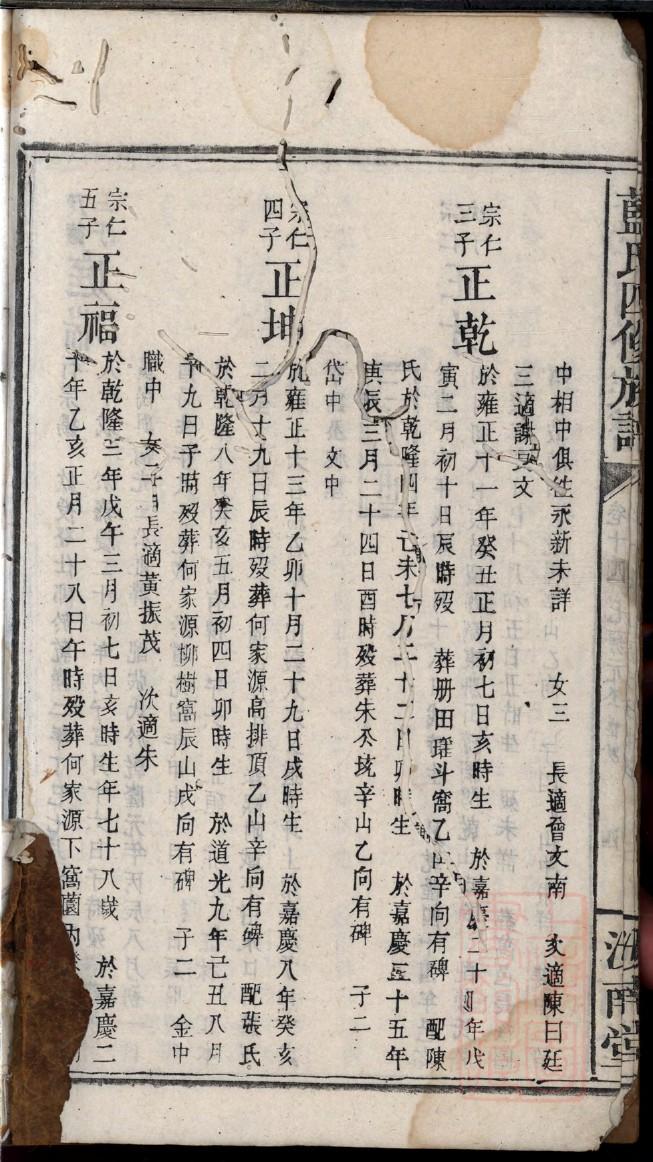 藍氏四修族譜
汝南堂
中相中俱往永新未詳 女三 長適曾文南 次適陳日廷
三適謝夏文
宗仁三子 正乾
於雍正十一年癸丑正月初七日亥時生 於嘉慶二十年戊
寅二月初十日辰時歿 葬册田瑶斗窩乙山辛向有碑 配陳
氏於乾隆四年己未七月二十二日卯時生 於嘉慶二十五年
庚辰三月二十四日酉時歿葬朱 辛山乙向有碑 子二
岱中 文中
宗仁四子 正坤
於雍正十三年乙卯十月二十九日戌時生 於嘉慶八年癸亥
二月十九日辰時歿葬何家源高排頂乙山辛向有碑 配張氏
於乾隆八年癸亥五月初四日卯時生 於道光九年己丑八月
九日子時歿葬何家源柳樹窩辰山戌向有碑 子二 金中
職中 女二 長適黃振茂 次適朱
宗仁五子 正福
於乾隆三年戊午三月初七日亥時生年七十八歲 於嘉慶二
十年乙亥正月二十八日午時歿葬何家源下窩園內